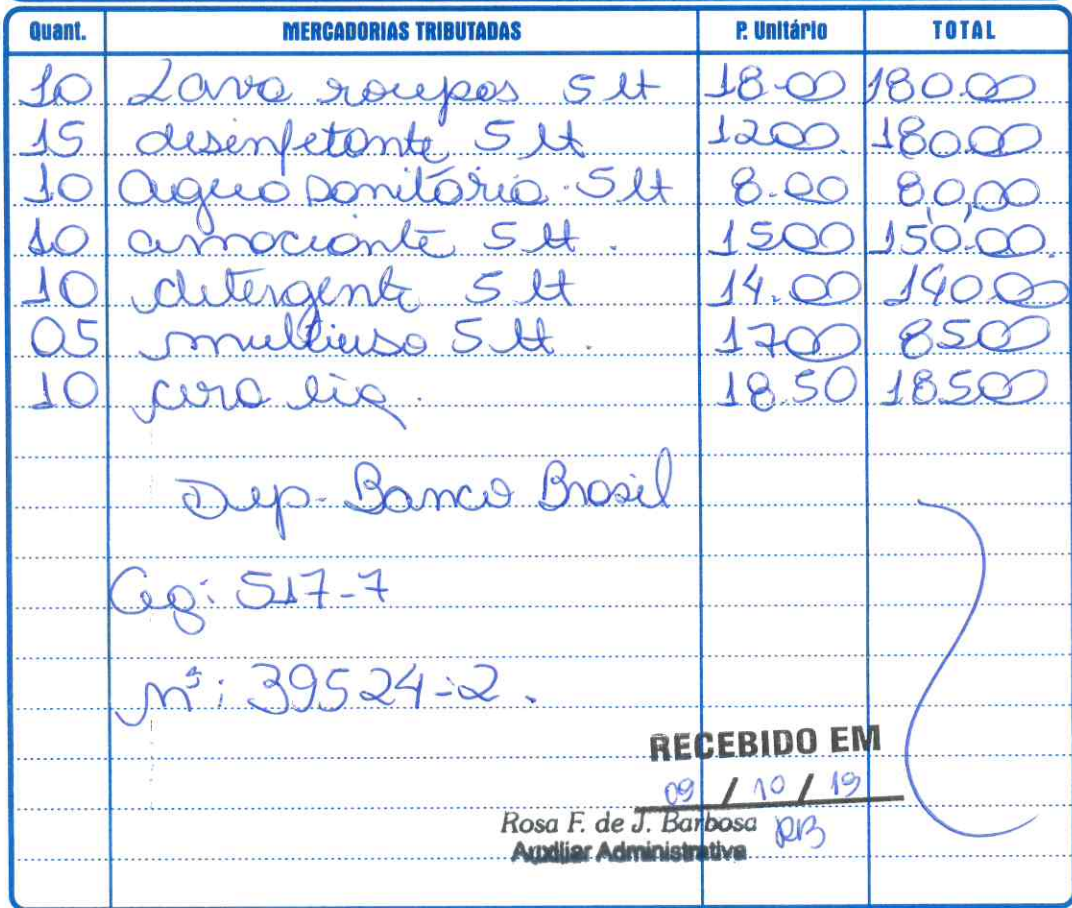 Quant. MERCADORIAS TRIBUTADAS P. Unitário TOTAL
10 Lava roupas 5 lt 18.00 180.00
15 desinfetante 5 lt 1200 180.00
10 agua sanitária 5 lt 8.00 80,00
10 amaciante 5 lt. 1500 150.00
10 detergente 5 lt 14.00 140.00
05 multiuso 5 lt. 1700 8500
10 cera liq. 18.50 18500
Dep. Banco Brasil
Ag: 517-7
nº: 39524-2.
RECEBIDO EM
09 / 10 / 19
Rosa F. de J. Barbosa RB
Auxiliar Administrativa